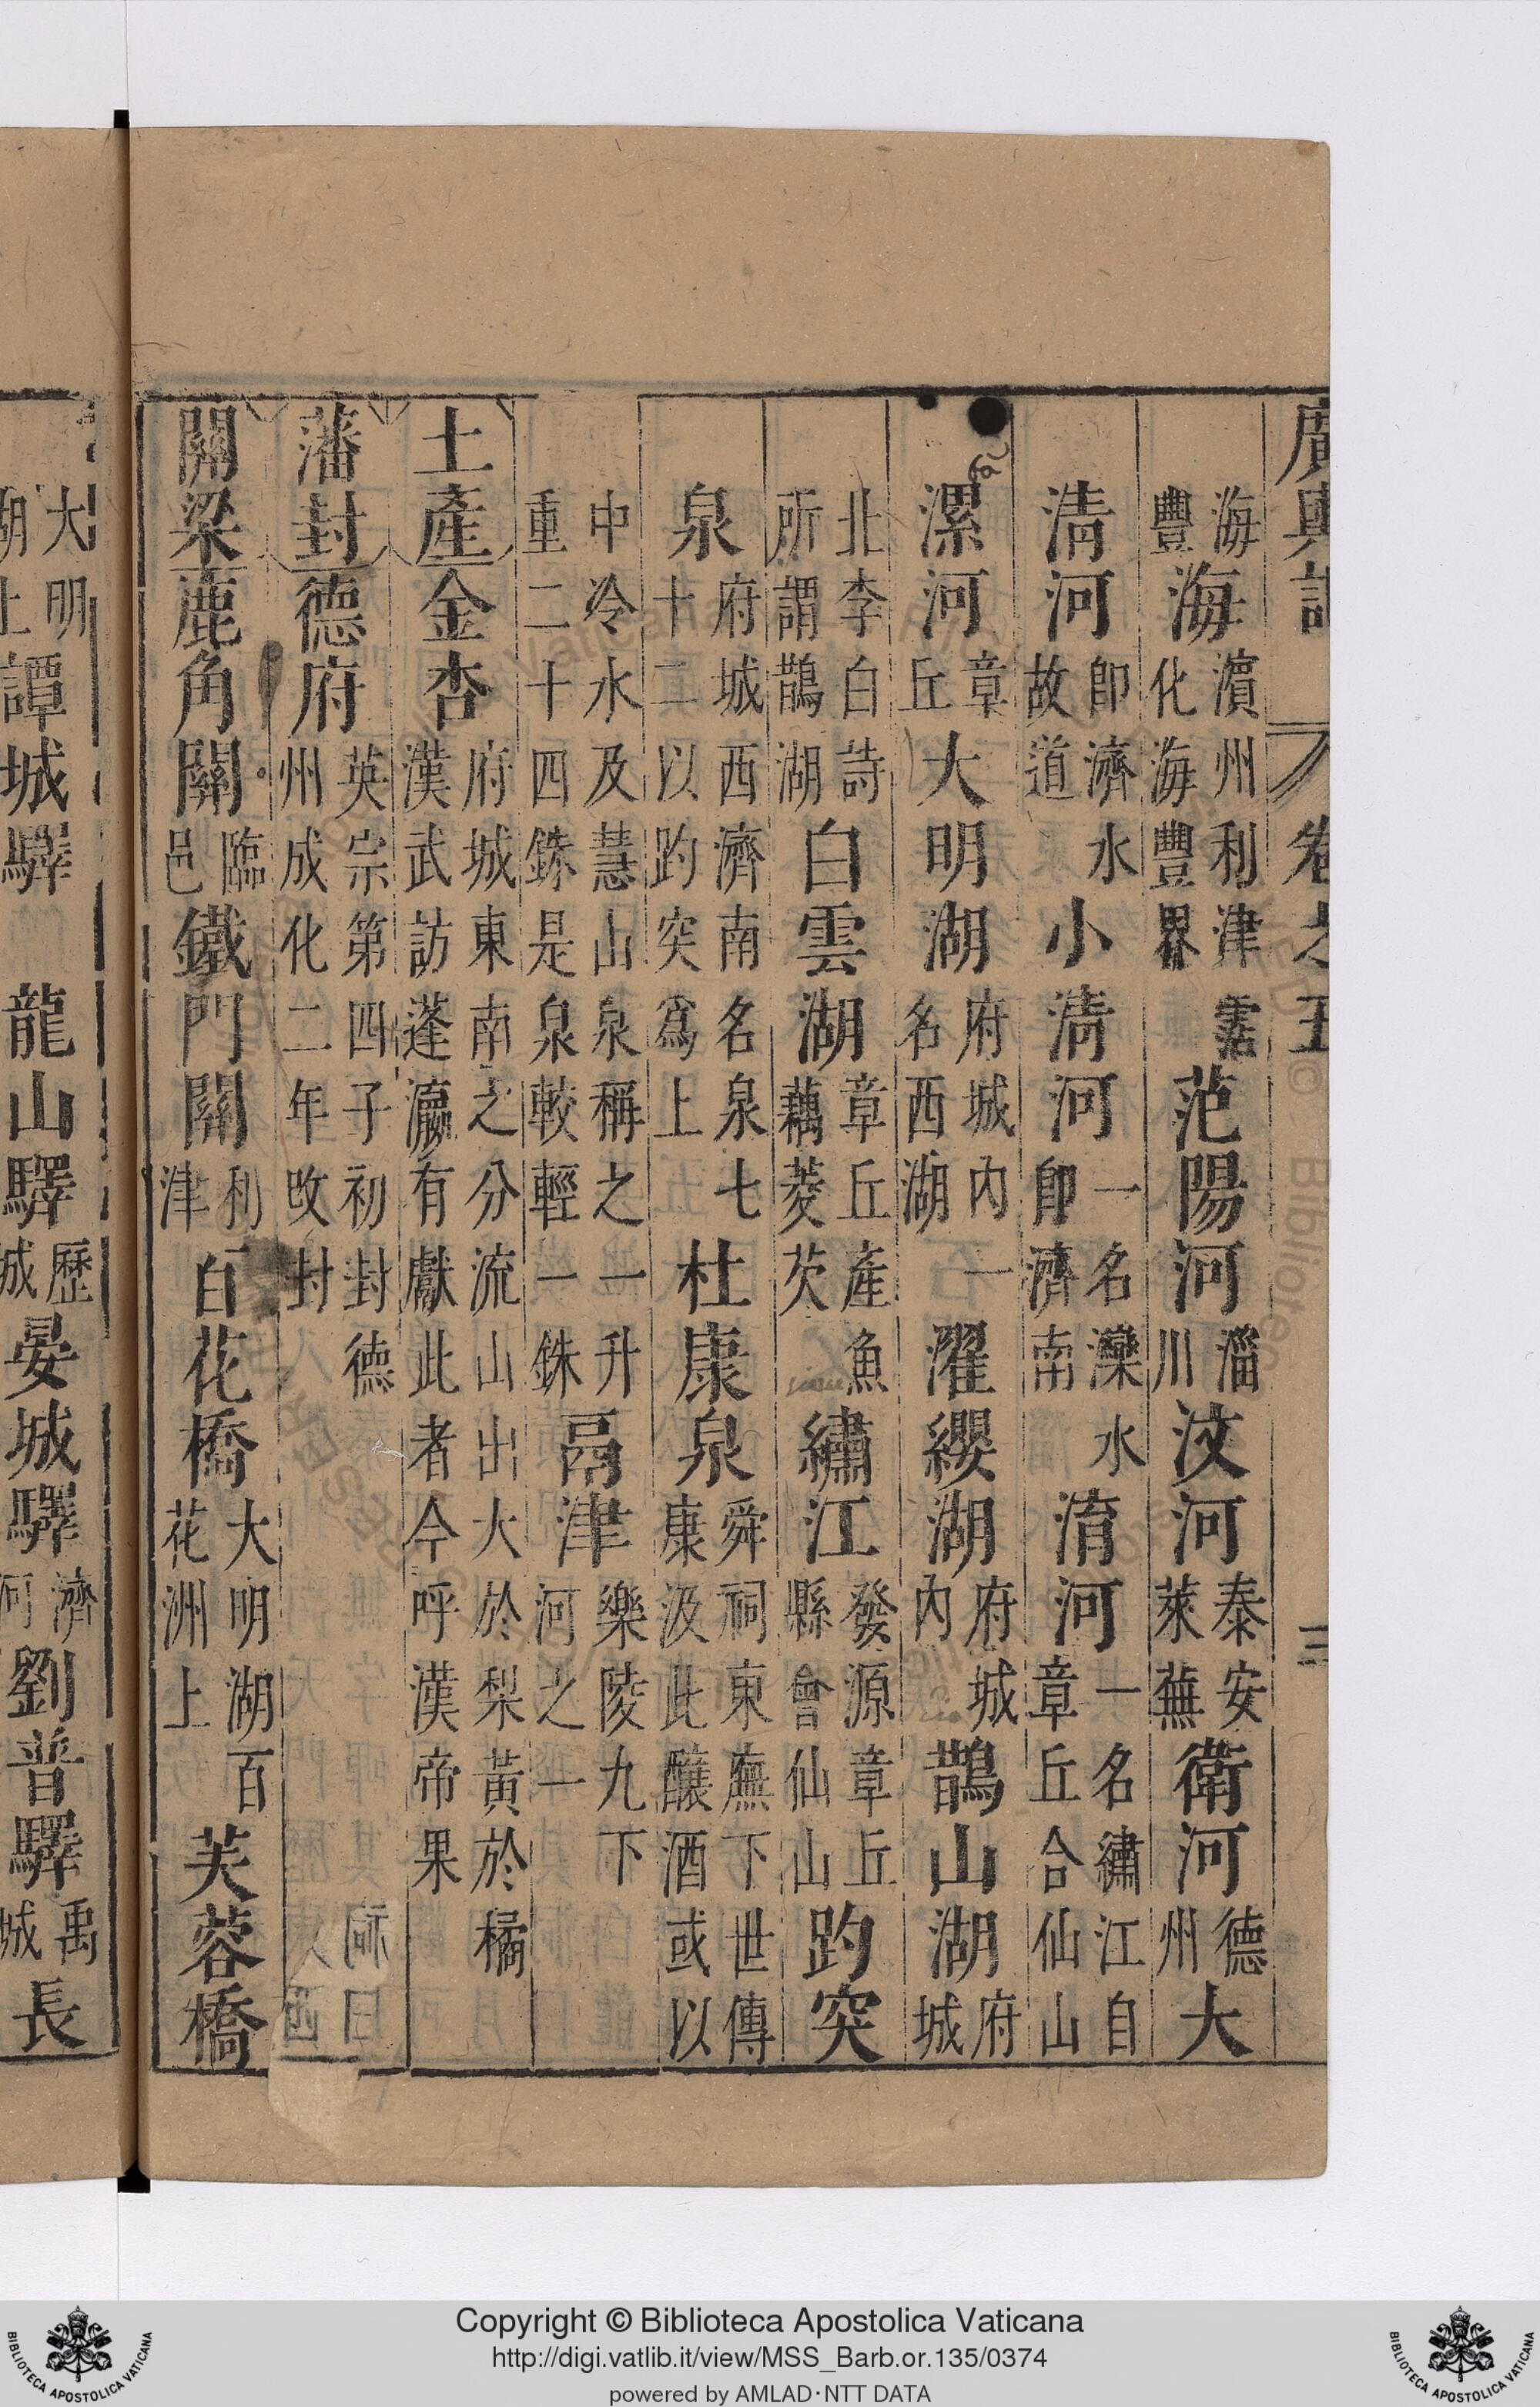 廣輿記 卷之五 三
海豐海濱州利津霑化海豐界范陽河淄川汶河泰安萊蕪衛河德州大
清河即濟水故道小清河一名灤水即濟南淯河一名繡江自章丘合仙山
漯河章丘大明湖府城內一名西湖濯纓湖府城內鵲山湖府城
北李白詩所謂鵲湖白雲湖章丘產魚藕菱芡繡江發源章丘縣會仙山趵突
泉府城西濟南名泉七十二以趵突爲上杜康泉舜祠東廡下世傳康汲此釀酒或以
中冷水及慧山泉稱之一升重二十四銖是泉較輕一銖鬲津樂陵九下河之一
土產金杏府城東南之分流山出大於梨黃於橘漢武訪蓬瀛有獻此者今呼漢帝果
藩封德府英宗第四子初封德州成化二年改封
關梁鹿角關臨邑鐵門關利津百花橋大明湖百花洲上芙蓉橋
大明湖上譚城驛 龍山驛歷城晏城驛濟河劉普驛禹城長
Copyright © Biblioteca Apostolica Vaticana
http://digi.vatlib.it/view/MSS_Barb.or.135/0374
powered by AMLAD·NTT DATA
BIBLIOTECA APOSTOLICA VATICANA
BIBLIOTECA APOSTOLICA VATICANA